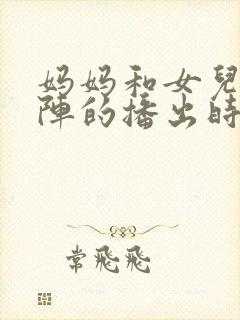 妈妈和女兒
陣的播出時
常飛飛